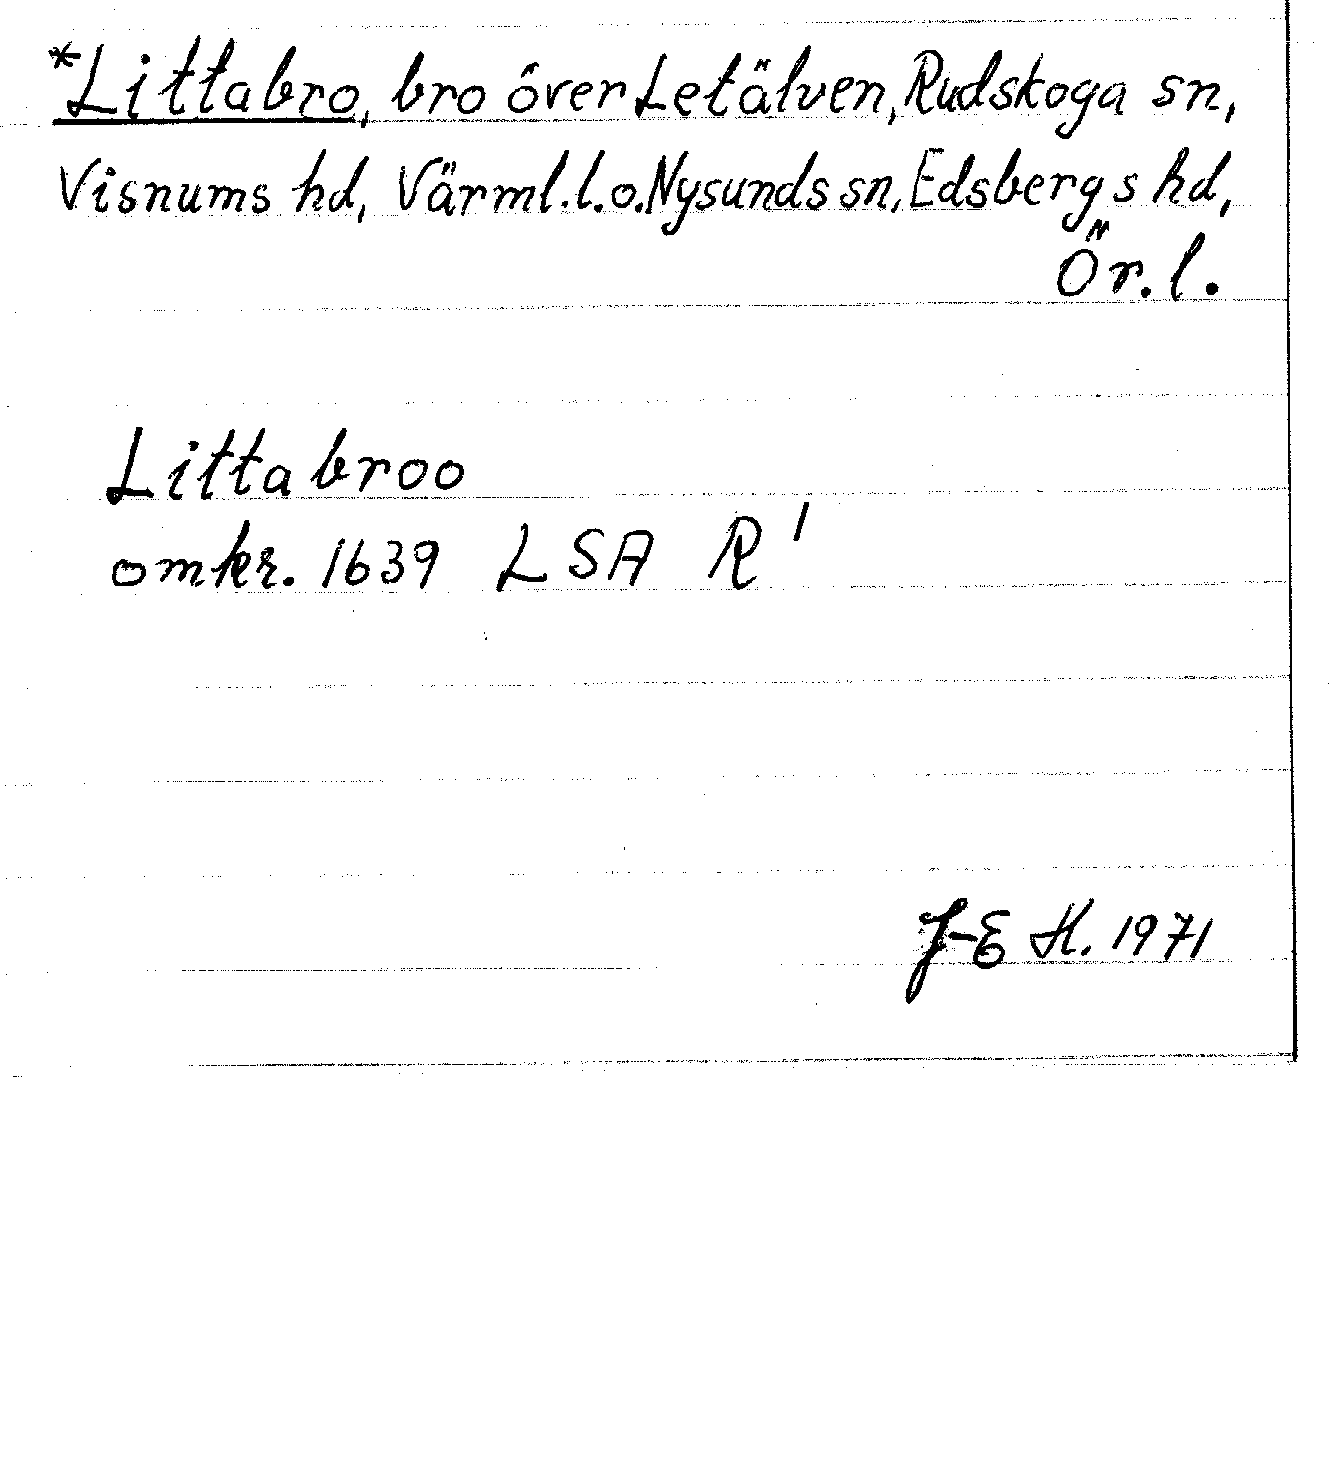 *Littabro, bro över Letälven, Rudskoga sn,
Visnums hd, Värml.l.o.Nysunds sn, Edsbergs hd,
Ör.l.
Littabroo
omkr. 1639 LSA R 1
J-E H. 1971